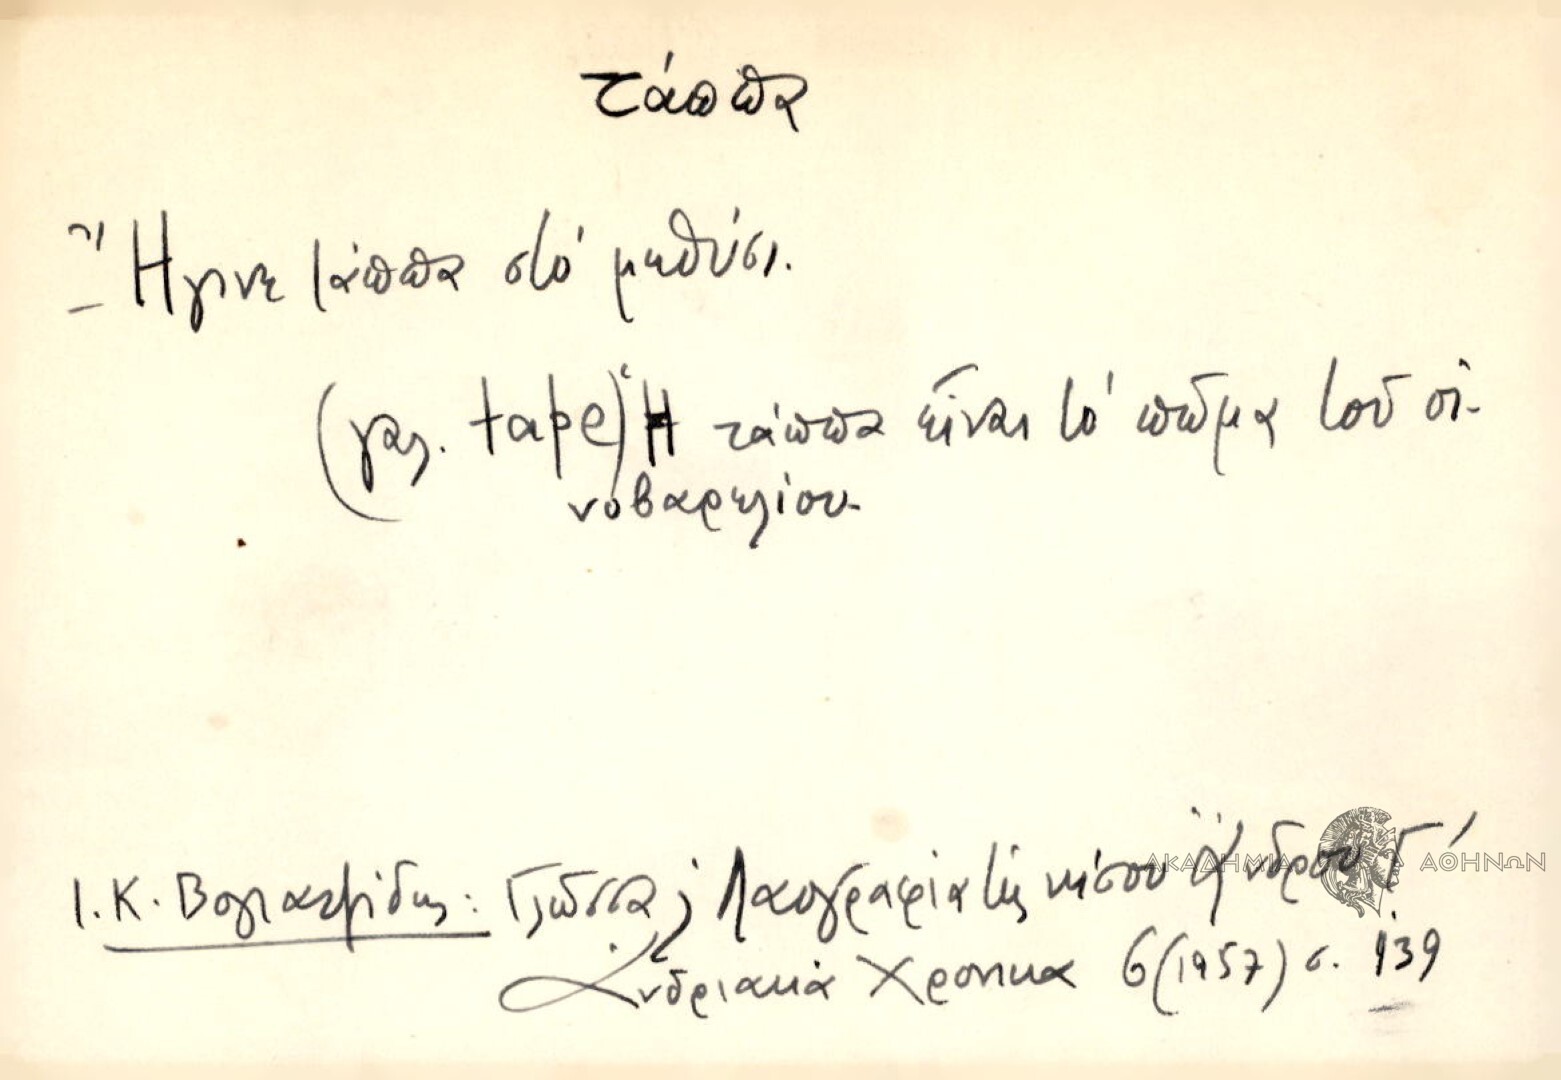 τάππα
Ἤγινε τάππα στό μεθύσι.
(γαλ. tape) Ἡ τάππα εἶναι τό πῶμα τοῦ οἰ-
νοβαρελίου.
Ι. Κ. Βογιατζίδης: Γλῶσσα κ Λαογραφία τῆς νήσου Ἄνδρου Γ΄
Ἀνδριακά Χρονικα 6 (1957) σ. 139
ΑΚΑΔΗΜΙΑ ΑΘΗΝΩΝ